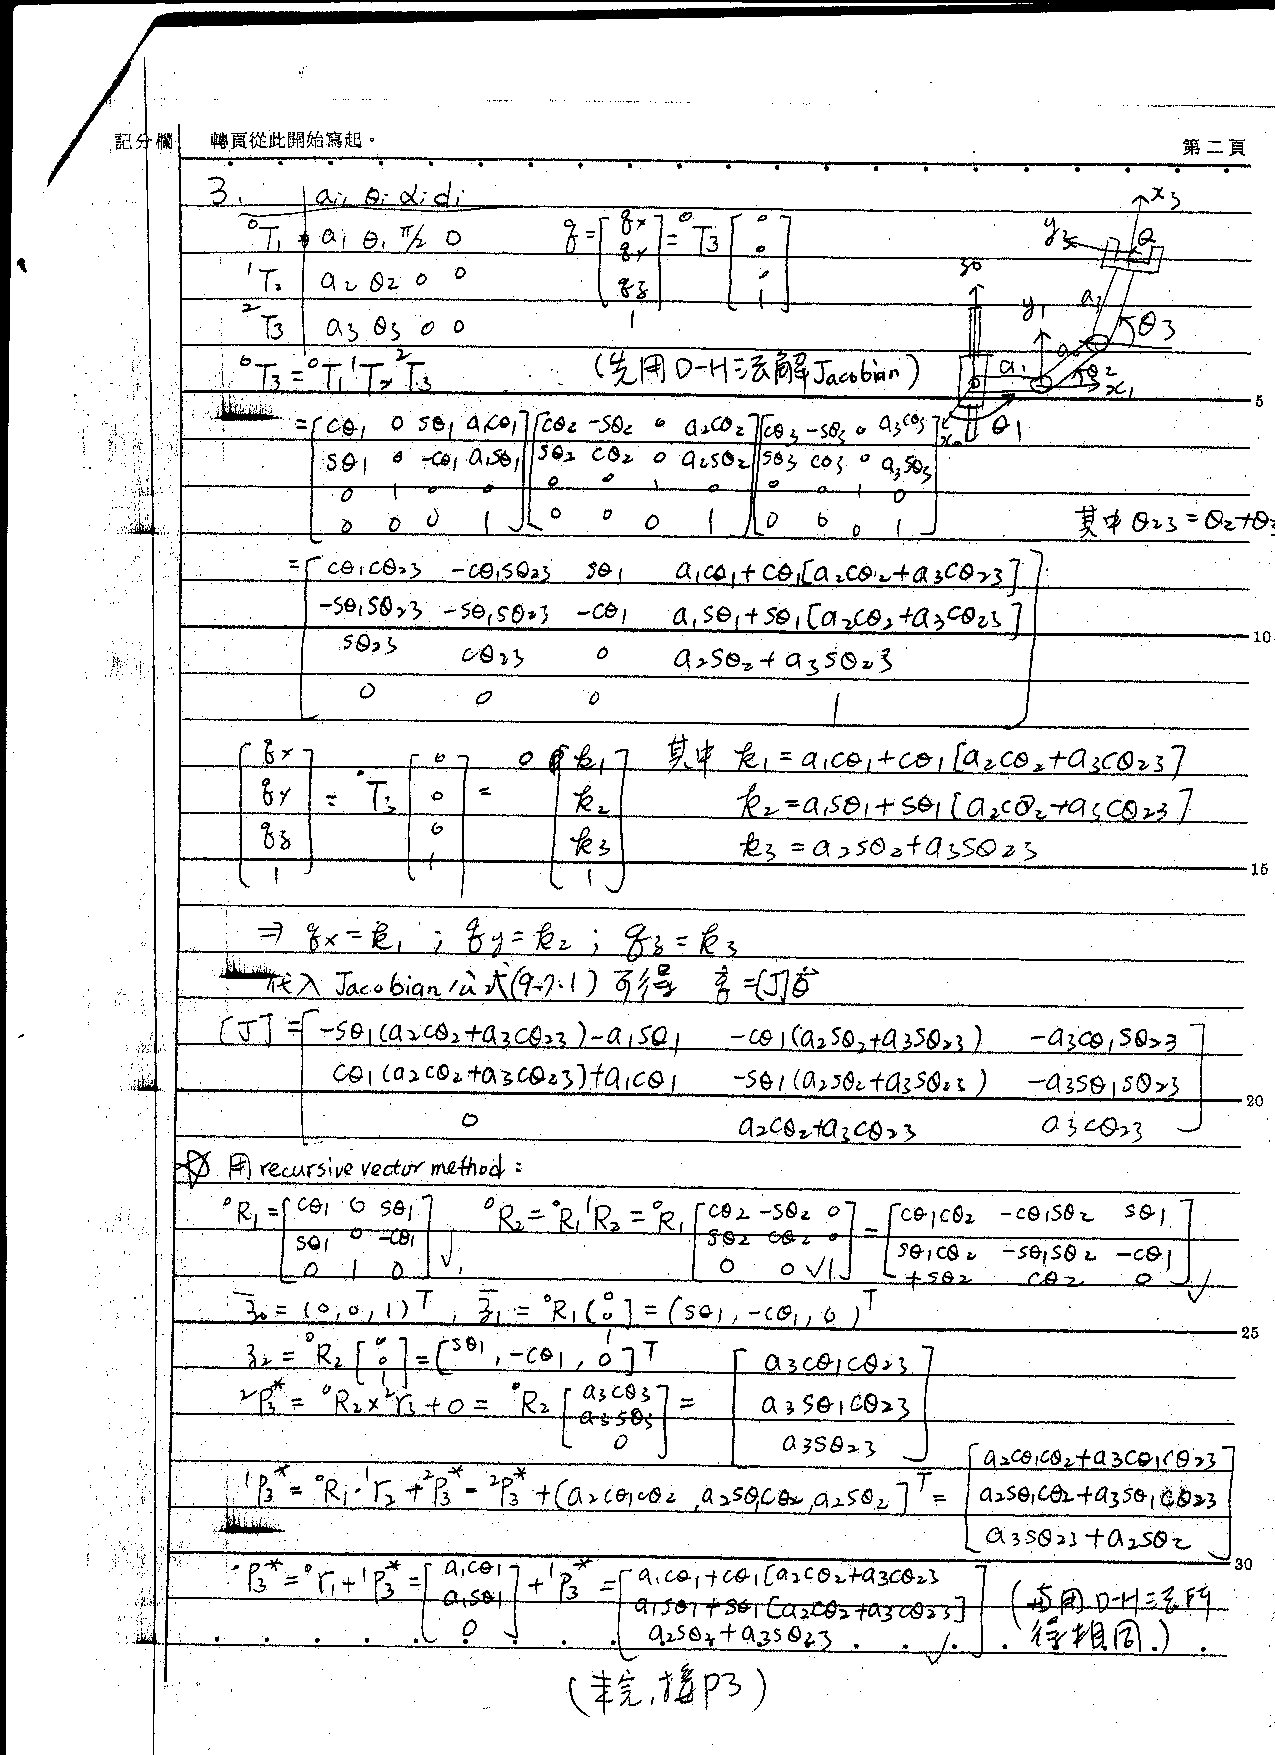 記分欄 轉頁從此開始寫起。 第二頁
3. ai θi αi di
⁰T₁ a₁ θ₁ π/2 0
¹T₂ a₂ θ₂ 0 0
²T₃ a₃ θ₃ 0 0
q = [qx qy qz 1] = ⁰T₃ [0 0 0 1]
z₀ y₁ x₁ a₁ θ₁ θ₂ θ₃ x₃ y₃ Q
⁰T₃ = ⁰T₁ ¹T₂ ²T₃ (先用D-H法解Jacobian)
= [cθ₁ 0 sθ₁ a₁cθ₁] [cθ₂ -sθ₂ 0 a₂cθ₂] [cθ₃ -sθ₃ 0 a₃cθ₃]
[sθ₁ 0 -cθ₁ a₁sθ₁] [sθ₂ cθ₂ 0 a₂sθ₂] [sθ₃ cθ₃ 0 a₃sθ₃]
[0 1 0 0] [0 0 1 0] [0 0 1 0]
[0 0 0 1] [0 0 0 1] [0 0 0 1] 其中 θ₂₃ = θ₂+θ₃
= [cθ₁cθ₂₃ -cθ₁sθ₂₃ sθ₁ a₁cθ₁+cθ₁[a₂cθ₂+a₃cθ₂₃]
-sθ₁sθ₂₃ -sθ₁sθ₂₃ -cθ₁ a₁sθ₁+sθ₁[a₂cθ₂+a₃cθ₂₃]
sθ₂₃ cθ₂₃ 0 a₂sθ₂+a₃sθ₂₃
0 0 0 1]
[qx qy qz 1] = ⁰T₃ [0 0 0 1] = [k₁ k₂ k₃ 1]
其中 k₁ = a₁cθ₁+cθ₁[a₂cθ₂+a₃cθ₂₃]
k₂ = a₁sθ₁+sθ₁[a₂cθ₂+a₃cθ₂₃]
k₃ = a₂sθ₂+a₃sθ₂₃
⇒ qx = k₁ ; qy = k₂ ; qz = k₃
代入 Jacobian 公式(9-7.1) 可得 = [J]
[J] = [-sθ₁(a₂cθ₂+a₃cθ₂₃)-a₁sθ₁ -cθ₁(a₂sθ₂+a₃sθ₂₃) -a₃cθ₁sθ₂₃
cθ₁(a₂cθ₂+a₃cθ₂₃)+a₁cθ₁ -sθ₁(a₂sθ₂+a₃sθ₂₃) -a₃sθ₁sθ₂₃
0 a₂cθ₂+a₃cθ₂₃ a₃cθ₂₃]
用 recursive vector method :
⁰R₁ = [cθ₁ 0 sθ₁] , ⁰R₂ = ⁰R₁ ¹R₂ = ⁰R₁ [cθ₂ -sθ₂ 0] = [cθ₁cθ₂ -cθ₁sθ₂ sθ₁]
[sθ₁ 0 -cθ₁] [sθ₂ cθ₂ 0] [sθ₁cθ₂ -sθ₁sθ₂ -cθ₁]
[0 1 0] [0 0 1] [+sθ₂ cθ₂ 0]
z₀ = (0,0,1)ᵀ , z₁ = ⁰R₁ (0 0 1) = (sθ₁, -cθ₁, 0)ᵀ
z₂ = ⁰R₂ [0 0 1] = [sθ₁, -cθ₁, 0]ᵀ
²P₃* = ⁰R₂ × ²r₃ + 0 = ⁰R₂ [a₃cθ₃ a₃sθ₃ 0] = [a₃cθ₁cθ₂₃ a₃sθ₁cθ₂₃ a₃sθ₂₃]
¹P₃* = ⁰R₁·¹r₂ + ²P₃* = ²P₃* + (a₂cθ₁cθ₂, a₂sθ₁cθ₂, a₂sθ₂]ᵀ = [a₂cθ₁cθ₂+a₃cθ₁cθ₂₃
a₂sθ₁cθ₂+a₃sθ₁cθ₂₃
a₃sθ₂₃+a₂sθ₂]
⁰P₃* = ⁰r₁ + ¹P₃* = [a₁cθ₁ a₁sθ₁ 0] + ¹P₃* = [a₁cθ₁+cθ₁[a₂cθ₂+a₃cθ₂₃
a₁sθ₁+sθ₁[a₂cθ₂+a₃cθ₂₃]
a₂sθ₂+a₃sθ₂₃] (與用D-H法所得相同.)
(未完,接P3)
5
10
15
20
25
30